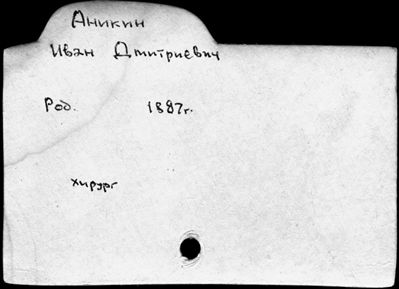 Аникин
Иван Дмитриевич
Род. 1887г.
хирург